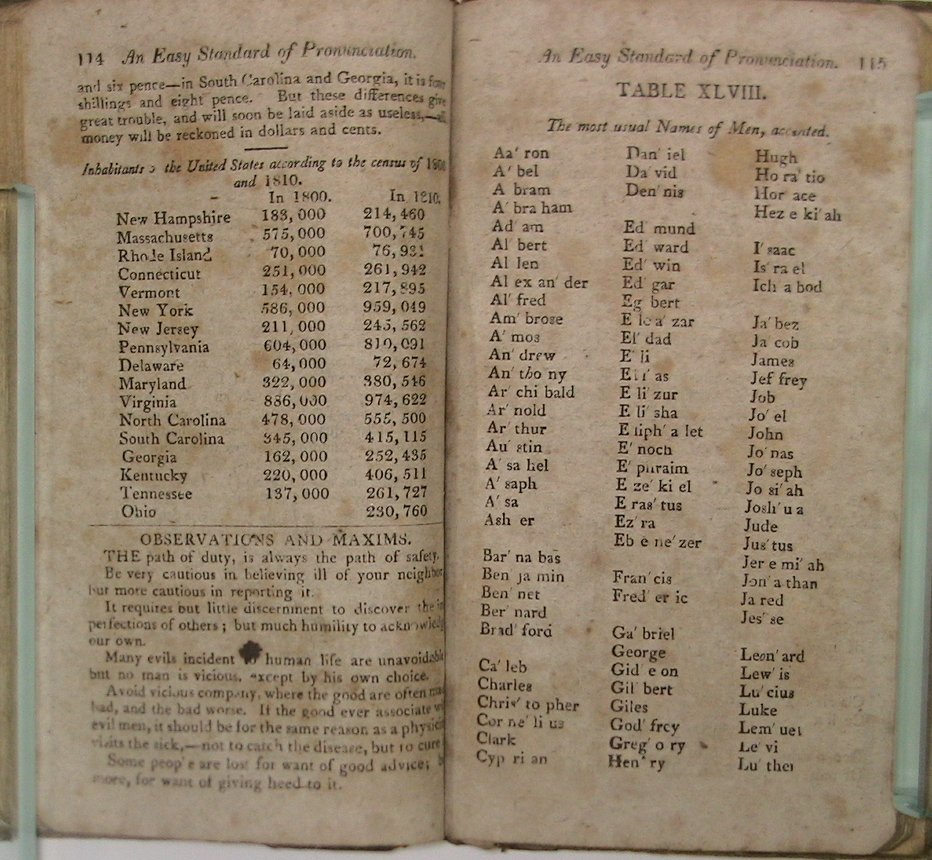 114 An Easy Standard of Pronunciation.
and six pence—in South Carolina and Georgia, it is four
shillings and eight pence. But these differences give
great trouble, and will soon be laid aside as useless,—all
money will be reckoned in dollars and cents.
Inhabitants the United States according to the census of 1800
and 1810.
In 1800. In 1810.
New Hampshire 183,000 214,460
Massachusetts 575,000 700,745
Rhode Island 70,000 76,931
Connecticut 251,000 261,942
Vermont 154,000 217,895
New York 586,000 959,049
New Jersey 211,000 245,562
Pennsylvania 604,000 810,091
Delaware 64,000 72,674
Maryland 322,000 380,546
Virginia 886,000 974,622
North Carolina 478,000 555,500
South Carolina 345,000 415,115
Georgia 162,000 252,435
Kentucky 220,000 406,511
Tennessee 137,000 261,727
Ohio 230,760
OBSERVATIONS AND MAXIMS.
THE path of duty, is always the path of safety.
Be very cautious in believing ill of your neighbor
but more cautious in reporting it.
It requires but little discernment to discover the im
perfections of others; but much humility to acknowledge
our own.
Many evils incident to human life are unavoidable
but no man is vicious, except by his own choice.
Avoid vicious company, where the good are often made
bad, and the bad worse. If the good ever associate
evil men, it should be for the same reason as a physician
visits the sick,—not to catch the disease, but to cure
Some people are lost for want of good advice;
more, for want of giving heed to it.
An Easy Standard of Pronunciation. 115
TABLE XLVIII.
The most usual Names of Men, accented.
Aa' ron
A' bel
A bram
A' bra ham
Ad' am
Al' bert
Al len
Al ex an' der
Al' fred
Am' brose
A' mos
An' drew
An' tho ny
Ar' chi bald
Ar' nold
Ar' thur
Au' stin
A' sa hel
A' saph
A' sa
Ash er
Bar' na bas
Ben ja min
Ben' net
Ber' nard
Brad' ford
Ca' leb
Charles
Chris' to pher
Cor ne' li us
Clark
Cyp ri an
Dan' iel
Da' vid
Den' nis
Ed mund
Ed' ward
Ed' win
Ed' gar
Eg bert
E le a' zar
El' dad
E' li
E li' as
E li' zur
E li' sha
E liph' a let
E' noch
E' phraim
E ze' ki el
E ras' tus
Ez' ra
Eb e ne' zer
Fran' cis
Fred' er ic
Ga' briel
George
Gid' e on
Gil' bert
Giles
God' frey
Greg' o ry
Hen' ry
Hugh
Ho ra' tio
Hor' ace
Hez e ki' ah
I' saac
Is' ra el
Ich a bod
Ja' bez
Ja cob
James
Jef frey
Job
Jo' el
John
Jo' nas
Jo' seph
Jo si' ah
Josh' u a
Jude
Jus' tus
Jer e mi' ah
Jon' a than
Ja red
Jes' se
Leon' ard
Lew' is
Lu' cius
Luke
Lem' uel
Le' vi
Lu' ther